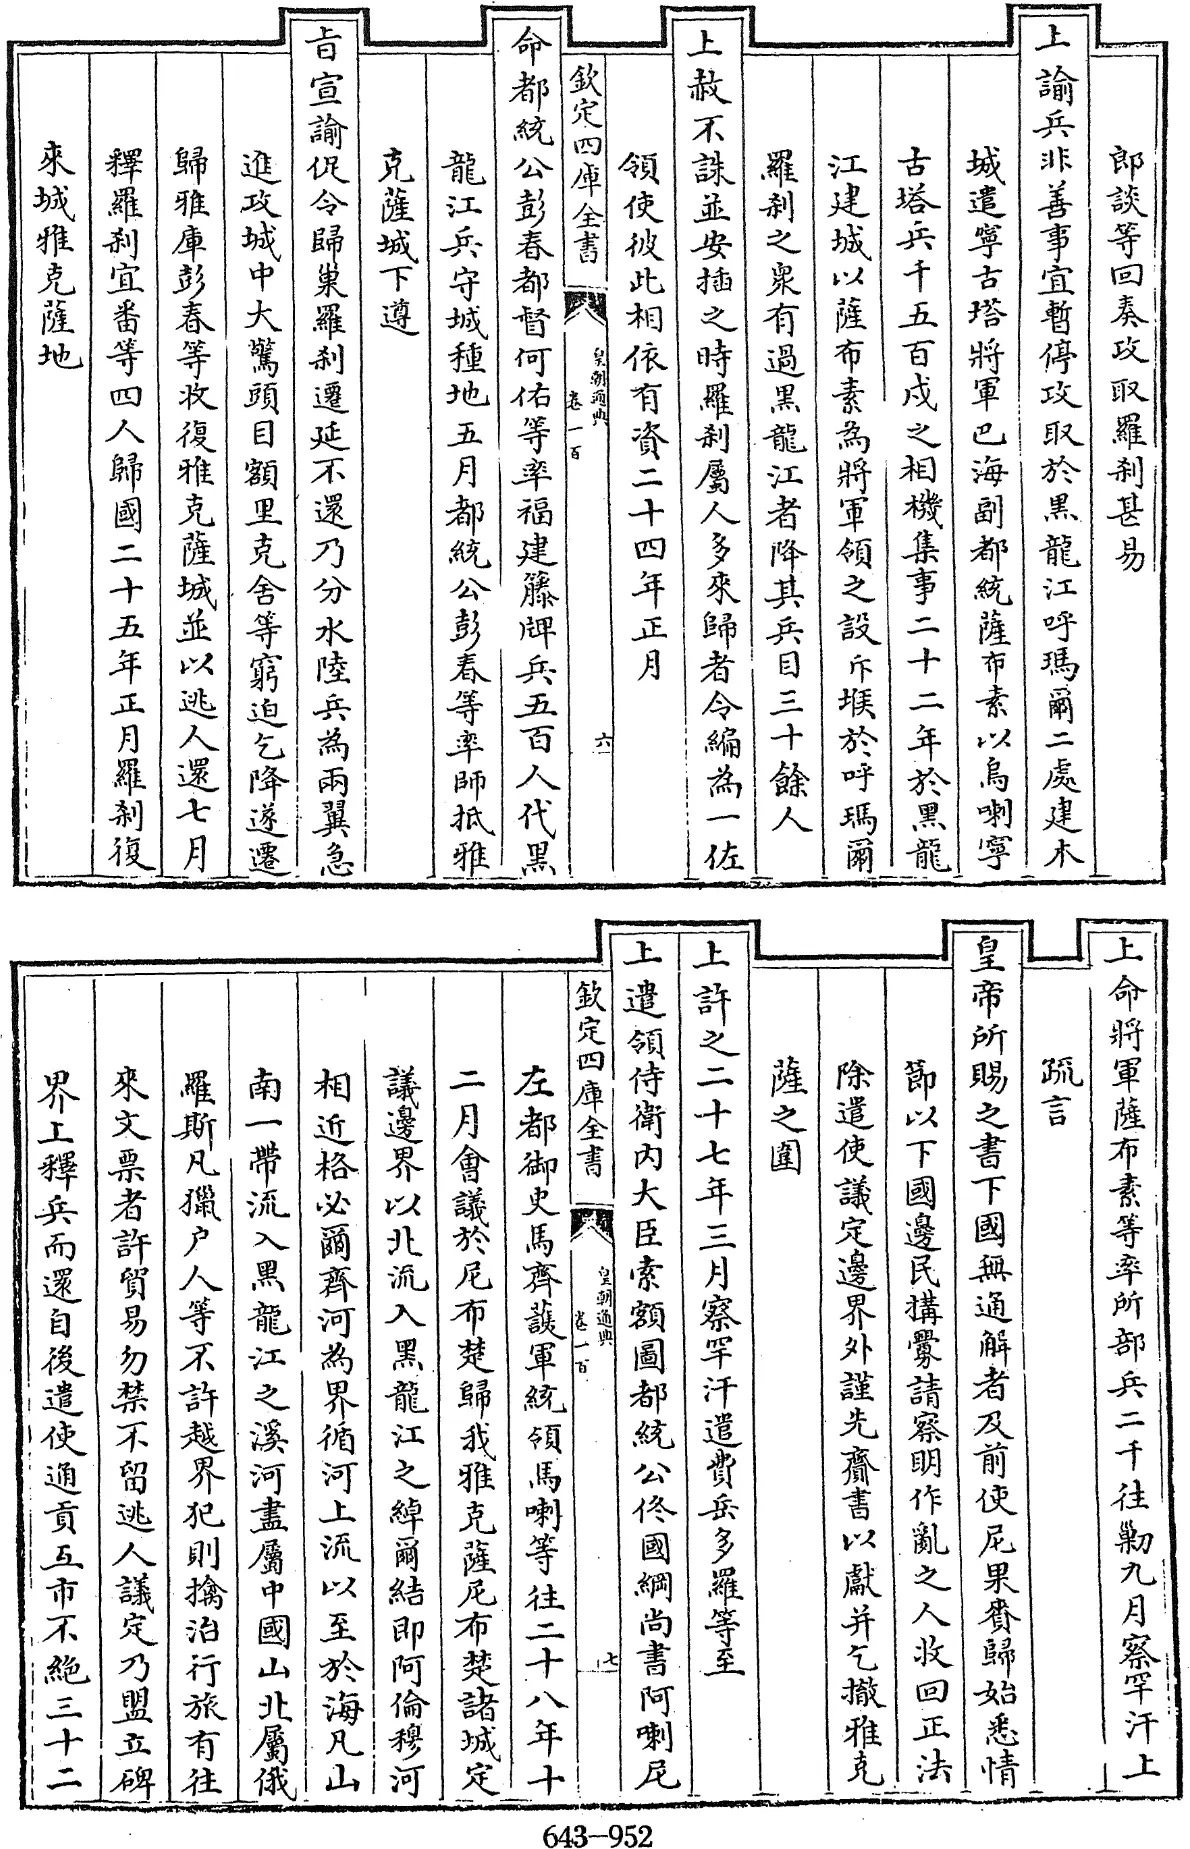 郎談等回奏攻取羅刹甚易
上諭兵非善事宜暫停攻取於黒龍江呼瑪爾二處建木
城遣寧古塔將軍巴海副都統薩布素以烏喇寧
古塔兵千五百戍之相機集事二十二年於黒龍
江建城以薩布素為將軍領之設斥堠於呼瑪爾
羅刹之衆有過黒龍江者降其兵目三十餘人
上赦不誅並安插之時羅刹屬人多來歸者令編為一佐
領使彼此相依有資二十四年正月
欽定四庫全書
皇朝通典
卷一百
六
命都統公彭春都督何佑等率福建籐牌兵五百人代黒
龍江兵守城種地五月都統公彭春等率師抵雅
克薩城下遵
㫖宣諭促令歸巢羅刹遷延不還乃分水陸兵為兩翼急
進攻城中大驚頭目額里克舍等窮迫乞降遂遷
歸雅庫彭春等收復雅克薩城並以逃人還七月
釋羅刹宜番等四人歸國二十五年正月羅刹復
來城雅克薩地
上命將軍薩布素等率所部兵二千往剿九月察罕汗上
疏言
皇帝所賜之書下國無通解者及前使尼果賚歸始悉情
節以下國邊民搆釁請察明作亂之人收回正法
除遣使議定邊界外謹先齎書以獻并乞撤雅克
薩之圍
上許之二十七年三月察罕汗遣費岳多羅等至
上遣領侍衛内大臣索額圖都統公佟國綱尚書阿喇尼
欽定四庫全書
皇朝通典
卷一百
七
左都御史馬齊護軍統領馬喇等往二十八年十
二月會議於尼布楚歸我雅克薩尼布楚諸城定
議邊界以北流入黒龍江之綽爾結即阿倫穆河
相近格必爾齊河為界循河上流以至於海凡山
南一帶流入黒龍江之溪河盡屬中國山北屬俄
羅斯凡獵户人等不許越界犯則擒治行旅有往
來文票者許貿易勿禁不留逃人議定乃盟立碑
界上釋兵而還自後遣使通貢互市不絶三十二
643-952